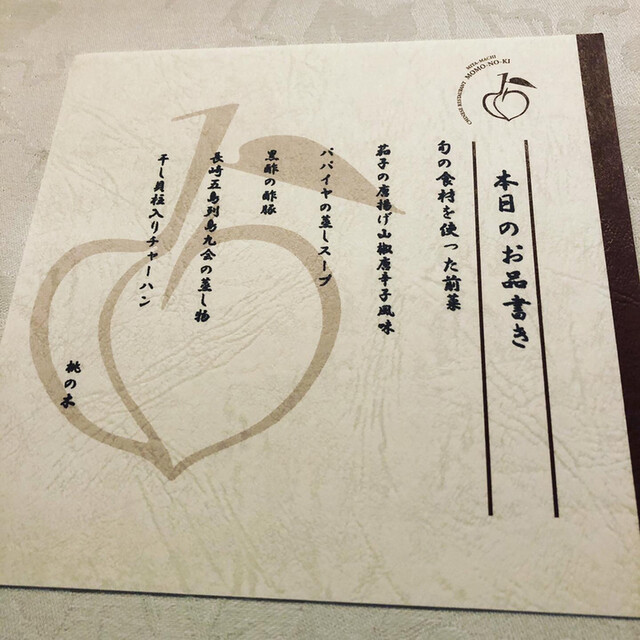 CHINESE RESTAURANT MITA-MACHI
MOMO-NO-KI
本日のお品書き
旬の食材を使った前菜
茄子の唐揚げ山椒唐辛子風味
パパイヤの蒸しスープ
黒酢の酢豚
長崎五島列島九会の蒸し物
干し貝柱入りチャーハン
桃の木